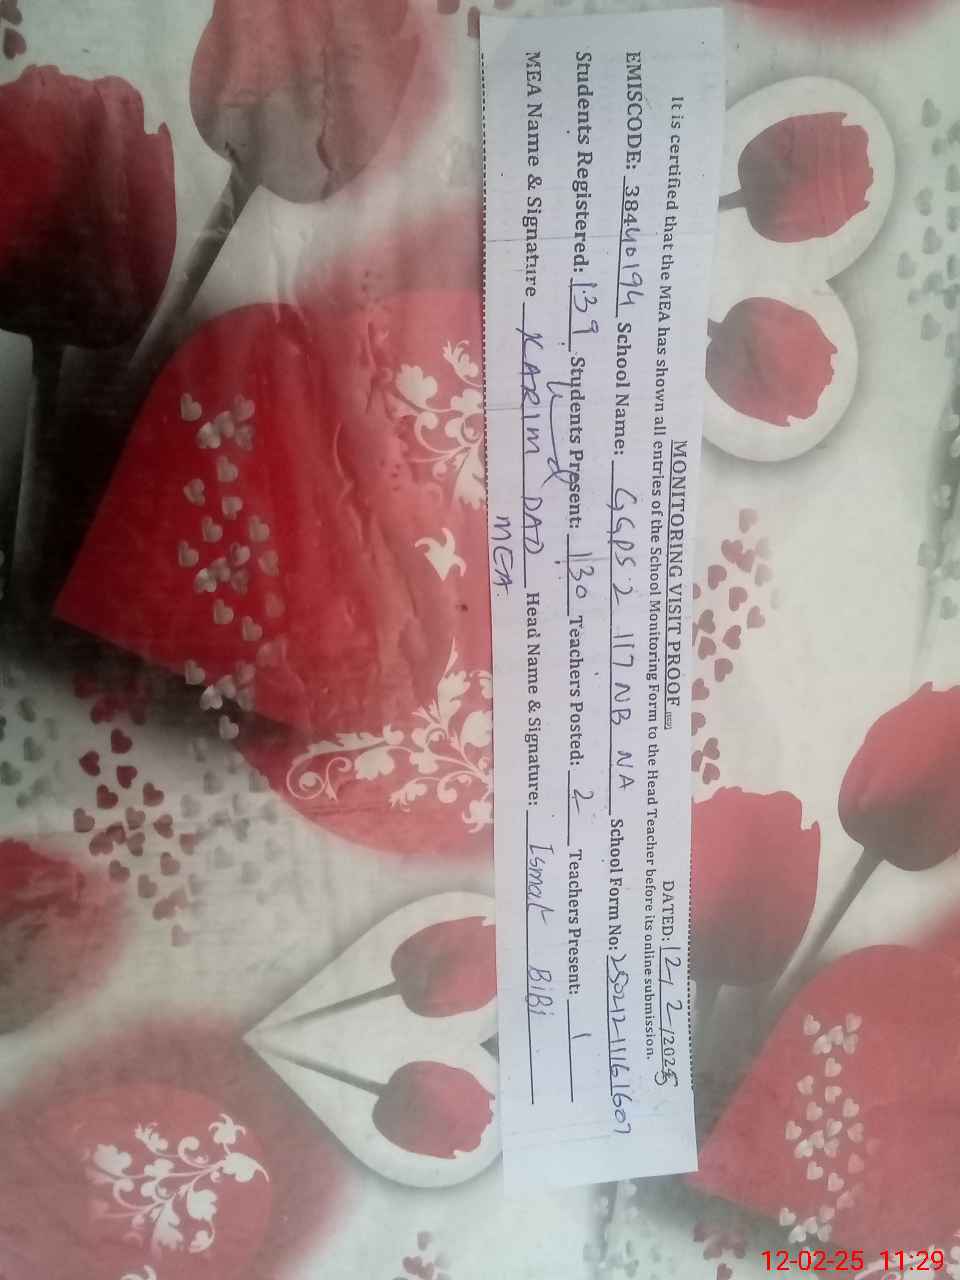 MONITORING VISIT PROOF DATED: 12/2/2025
It is certified that the MEA has shown all entries of the School Monitoring Form to the Head Teacher before its online submission.
EMISCODE: 38440194 School Name: GGPS 2 117 NB NA School Form No: 25021211161607
Students Registered: 139 Students Present: 130 Teachers Posted: 2 Teachers Present: 1
MEA Name & Signature KARIM DAD Head Name & Signature: Ismat BiBi
MEA
12-02-25 11:29